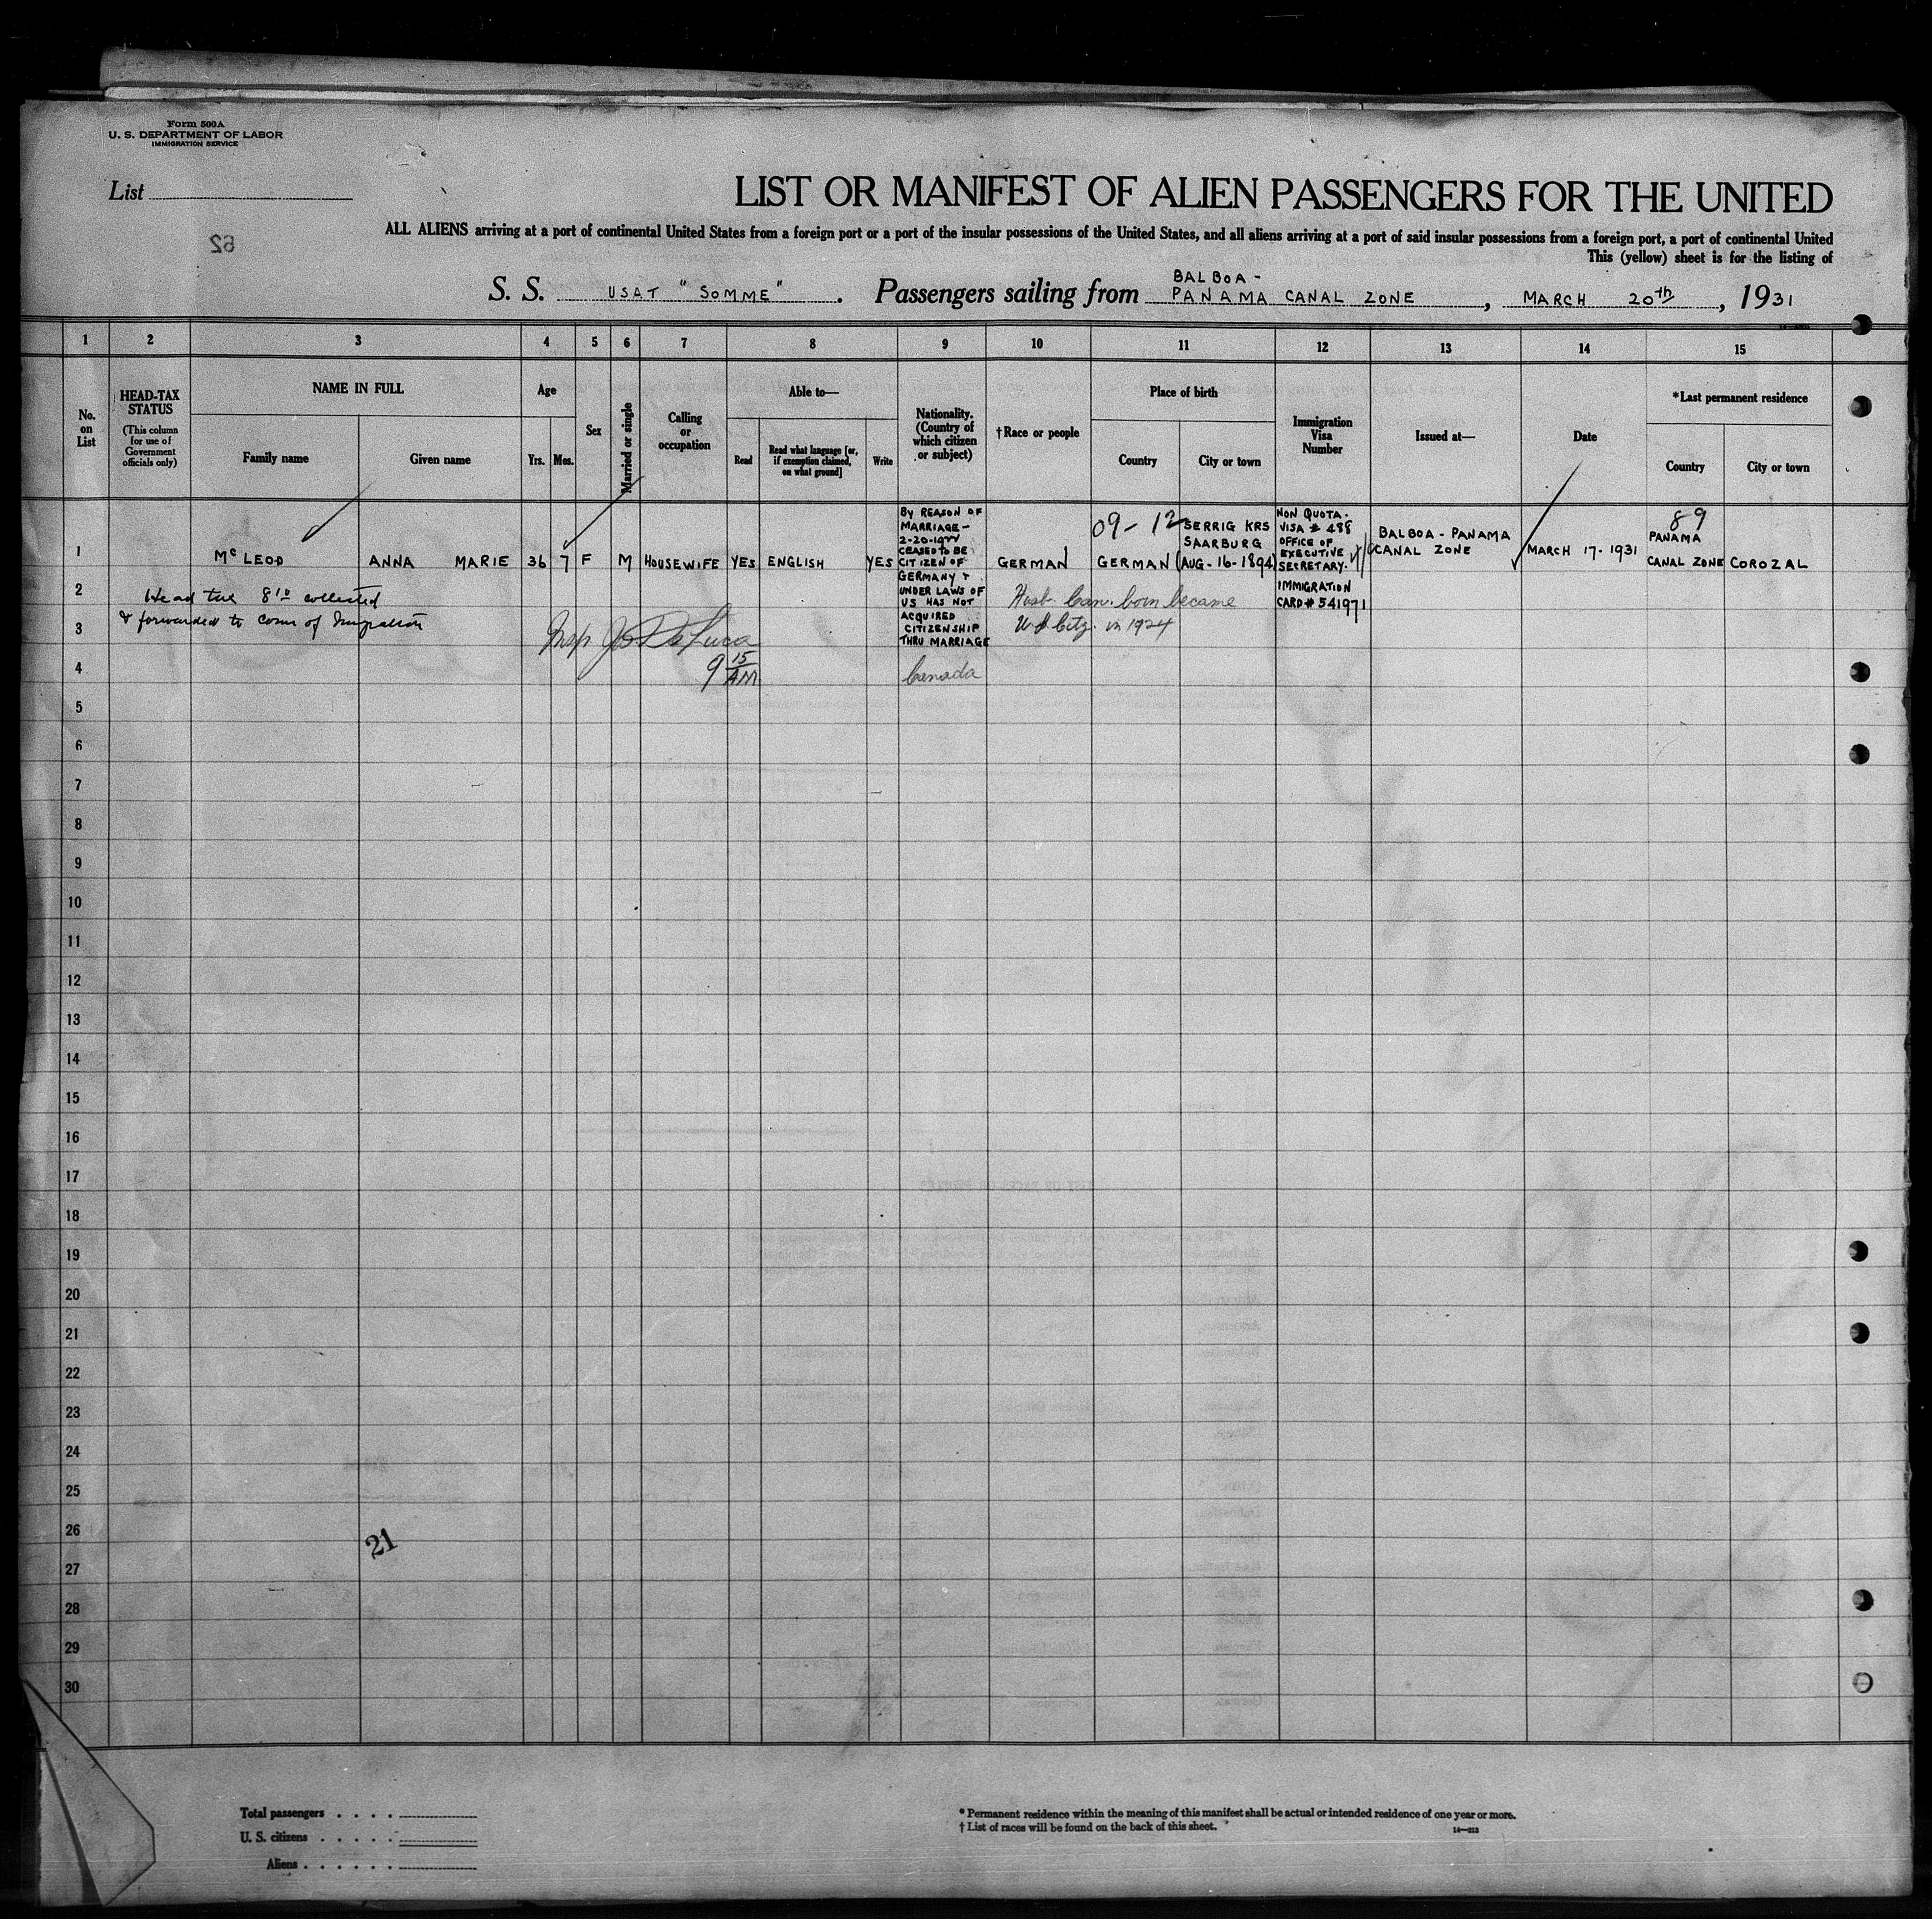 Form 500A
U. S. DEPARTMENT OF LABOR
IMMIGRATION SERVICE
List
62
LIST OR MANIFEST OF ALIEN PASSENGERS FOR THE UNITED
ALL ALIENS arriving at a port of continental United States from a foreign port or a port of the insular possessions of the United States, and all aliens arriving at a port of said insular possessions from a foreign port, a port of continental United
This (yellow) sheet is for the listing of
S. S. USAT "SOMME". Passengers sailing from BALBOA - PANAMA CANAL ZONE, MARCH 20th, 1931
1 2 3 4 5 6 7 8 9 10 11 12 13 14 15
No. on List
HEAD-TAX STATUS
(This column for use of Government officials only)
NAME IN FULL
Family name
Given name
Age
Yrs. Mos.
Sex
Married or single
Calling or occupation
Able to—
Read
Read what language [or, if exemption claimed, on what ground]
Write
Nationality. (Country of which citizen or subject)
†Race or people
Place of birth
Country
City or town
Immigration Visa Number
Issued at—
Date
*Last permanent residence
Country
City or town
1
McLEOD
ANNA MARIE
36 7 F M HOUSEWIFE YES ENGLISH YES
BY REASON OF
MARRIAGE -
CEASED TO BE
CITIZEN OF
GERMANY +
UNDER LAWS OF
US HAS NOT
ACQUIRED
CITIZENSHIP
THRU MARRIAGE
Canada
GERMAN
09-12
GERMAN
SERRIG KRS
SAARBURG
(AUG-16-1894)
NON QUOTA-
VISA # 488
OFFICE OF
EXECUTIVE
SECRETARY.
IMMIGRATION
CARD # 541971
BALBOA - PANAMA
CANAL ZONE
MARCH 17-1931
89
PANAMA
CANAL ZONE
COROZAL
2
Head tax 8.10 collected
Husb. Can. born became
3
& forwarded to Comr of Immigration
Insp. De Luca
U.S. Citz. in 1924
4
9 15 AM
5
6
7
8
9
10
11
12
13
14
15
16
17
18
19
20
21
22
23
24
25
26
21
27
28
29
30
Total passengers
U. S. citizens
Aliens
* Permanent residence within the meaning of this manifest shall be actual or intended residence of one year or more.
† List of races will be found on the back of this sheet.
14—213